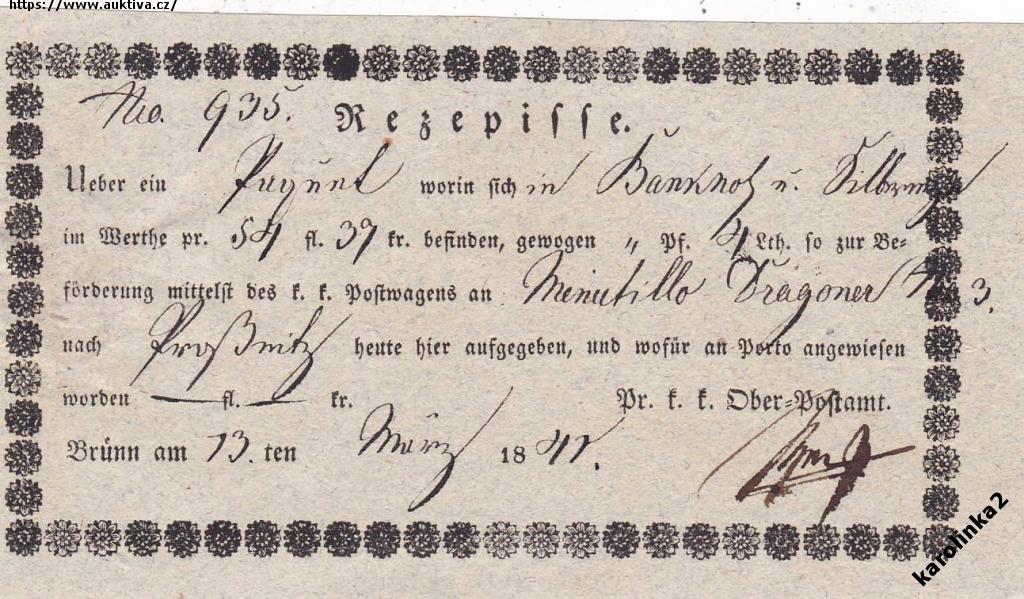 https://www.auktiva.cz/
Nro. 935. Rezepisse.
Ueber ein Paquet worin sich in Banknot u. Silbermze
im Werthe pr. 54 fl. 39 kr. befinden, gewogen „ Pf. 4 Lth. so zur Be=
förderung mittelst des k. k. Postwagens an Minutillo Dragoner N 3.
nach Proßnitz heute hier aufgegeben, und wofür an Porto angewiesen
worden — fl. — kr. Pr. k. k. Ober=Postamt.
Brünn am 13. ten März 1841.
karolinka2